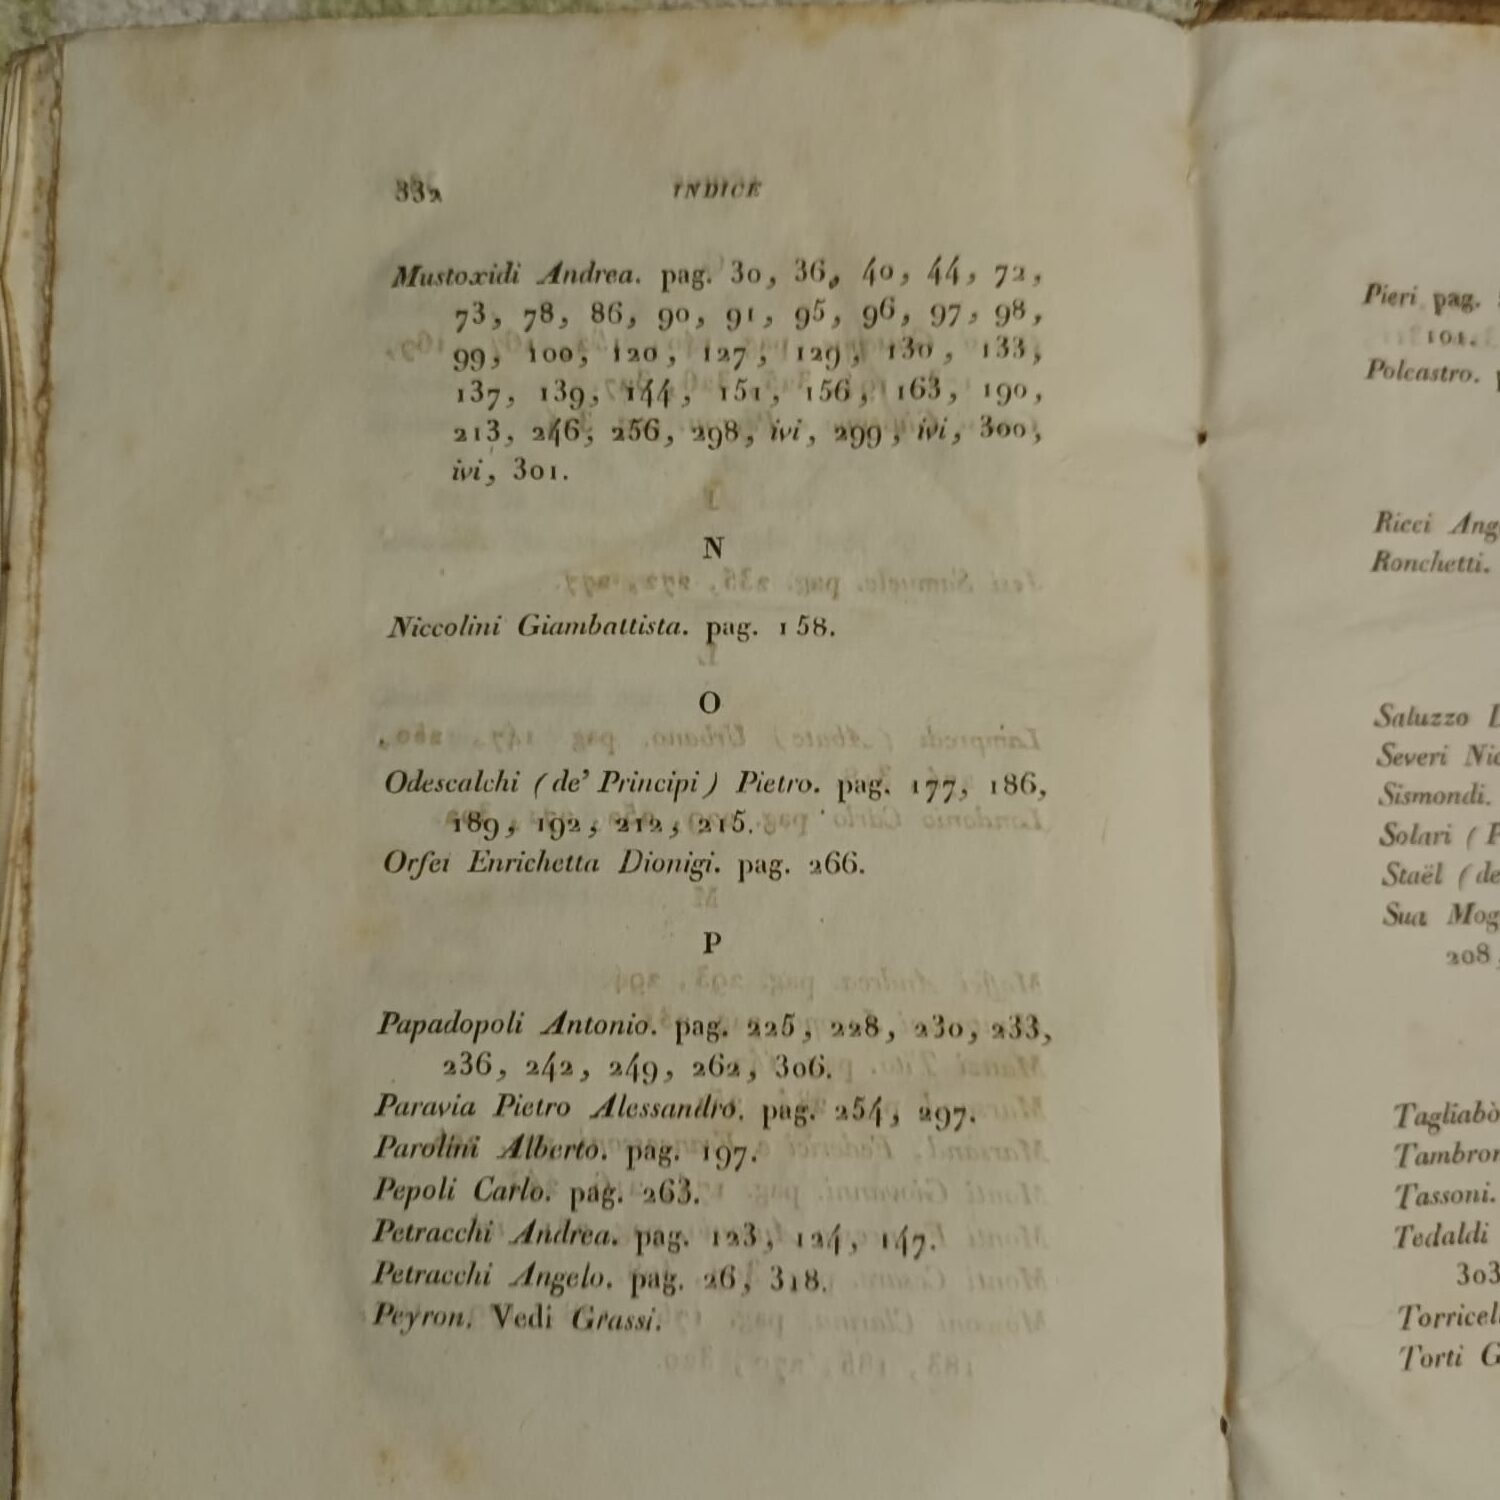 332 INDICE
Mustoxidi Andrea. pag. 30, 36, 40, 44, 72,
73, 78, 86, 90, 91, 95, 96, 97, 98,
99, 100, 120, 127, 129, 130, 133,
137, 139, 144, 151, 156, 163, 190,
213, 246, 256, 298, ivi, 299, ivi, 300,
ivi, 301.
N
Niccolini Giambattista. pag. 158.
O
Odescalchi (de' Principi) Pietro. pag. 177, 186,
189, 192, 212, 215.
Orfei Enrichetta Dionigi. pag. 266.
P
Papadopoli Antonio. pag. 225, 228, 230, 233,
236, 242, 249, 262, 306.
Paravia Pietro Alessandro. pag. 254, 297.
Parolini Alberto. pag. 197.
Pepoli Carlo. pag. 263.
Petracchi Andrea. pag. 123, 124, 147.
Petracchi Angelo. pag. 26, 318.
Peyron. Vedi Grassi.
Pieri pag.
101.
Polcastro.
Ricci
Ronchetti.
Saluzzo
Severi
Sismondi.
Solari (
Staël (de
Sua
208,
Tassoni.
Tedaldi
Torti